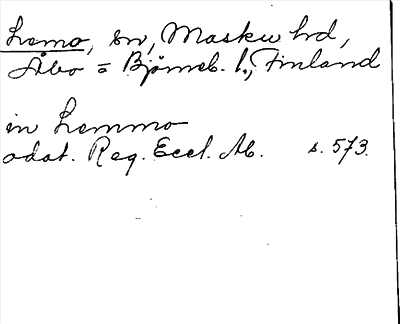 Lemo, sn, Masku hd,
Åbo = Björneb. l., Finland
in Lemmo
odat. Reg. Eccl. Ab. s. 573.